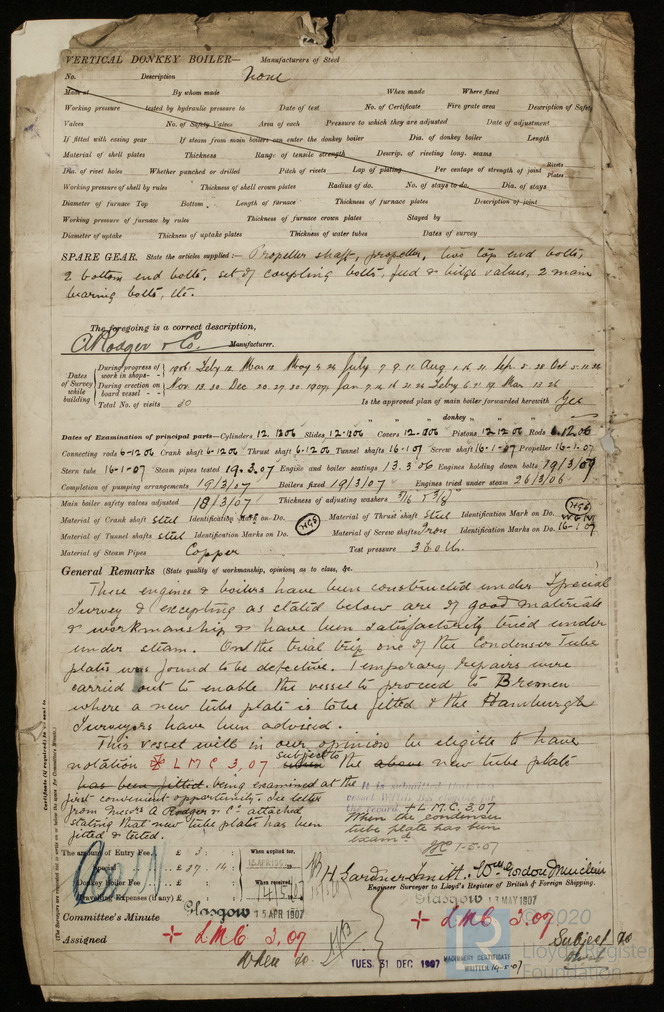 VERTICAL DONKEY BOILER— Manufacturers of Steel
No. Description None
Made at By whom made When made Where fixed
Working pressure tested by hydraulic pressure to Date of test No. of Certificate Fire grate area Description of Safety
Valves No. of Safety Valves Area of each Pressure to which they are adjusted Date of adjustment
If fitted with easing gear If steam from main boilers can enter the donkey boiler Dia. of donkey boiler Length
Material of shell plates Thickness Range of tensile strength Descrip. of riveting long. seams
Dia. of rivet holes Whether punched or drilled Pitch of rivets Lap of plating Per centage of strength of joint Rivets Plates
Working pressure of shell by rules Thickness of shell crown plates Radius of do. No. of stays to do. Dia. of stays
Diameter of furnace Top Bottom Length of furnace Thickness of furnace plates Description of joint
Working pressure of furnace by rules Thickness of furnace crown plates Stayed by
Diameter of uptake Thickness of uptake plates Thickness of water tubes Dates of survey
SPARE GEAR. State the articles supplied:— Propeller shaft, propeller, two top end bolts,
2 bottom end bolts, set of coupling bolts, feed & bilge valves, 2 main
bearing bolts, etc.
The foregoing is a correct description,
A Rodger & Co. Manufacturer.
Dates of Survey while building
During progress of work in shops— 1906 Feby 12 Mar 12 May July 7 9 11 Aug Sep. 5 28 Oct
During erection on board vessel — Nov 13 30 Dec 20 27 30 1907 Jan Feby Mar 13 26
Total No. of visits 30 Is the approved plan of main boiler forwarded herewith Yes
" " " donkey " " "
Dates of Examination of principal parts—Cylinders 12.12.06 Slides 12.12.06 Covers 12.12.06 Pistons 12.12.06 Rods 6.12.06
Connecting rods 6-12-06 Crank shaft 6.12.06 Thrust shaft 6.12.06 Tunnel shafts 16-1-07 Screw shaft 16-1-07 Propeller 16-1-07
Stern tube 16-1-07 Steam pipes tested 19.3.07 Engine and boiler seatings 13.3.06 Engines holding down bolts 19/3/07
Completion of pumping arrangements 19/3/07 Boilers fixed 19/3/07 Engines tried under steam 26/3/06
Main boiler safety valves adjusted 18/3/07 Thickness of adjusting washers
Material of Crank shaft steel Identification Mark on Do. HGS Material of Thrust shaft steel Identification Mark on Do. HGS
Material of Tunnel shafts steel Identification Marks on Do. Material of Screw shafts Iron Identification Marks on Do. 16-1-07
Material of Steam Pipes Copper Test pressure 360 lb.
General Remarks (State quality of workmanship, opinions as to class, &c.
These engines & boilers have been constructed under Special
Survey & excepting as stated below are of good materials
& workmanship & have been satisfactorily tried under
under steam. On the trial trip one of the Condenser Tube
plates was found to be defective. Temporary repairs were
carried out to enable the vessel to proceed to Bremen
where a new tube plate is to be fitted & the Hamburgh
Surveyors have been advised.
This vessel will in our opinion be eligible to have
notation L M C 3,07 subject to the above new tube plate
has been fitted. being examined at the
first convenient opportunity. See letter
from Messrs A Rodger & Co attached
stating that new tube plate has been
fitted & tested.
It is submitted that
the record + L.M.C. 3,07
When the condenser
tube plate has been
exam'd.
1-5-07
The amount of Entry Fee. £ 3 : When applied for,
Special £ 37 : 14 : 15 APR 1907
Donkey Boiler Fee £ When received,
Travelling Expenses (if any) £
H. Gardner-Smith. Wm Gordon Muiclair
Engineer Surveyor to Lloyd's Register of British & Foreign Shipping.
Committee's Minute Glasgow 15 APR 1907 Glasgow 13 MAY 1907
Assigned + LMC 3,07 + LMC 3.07
When Subject to
TUES. 31 DEC 1907
MACHINERY CERTIFICATE
WRITTEN 14-5-07
© 2020
Lloyd's Register
Foundation